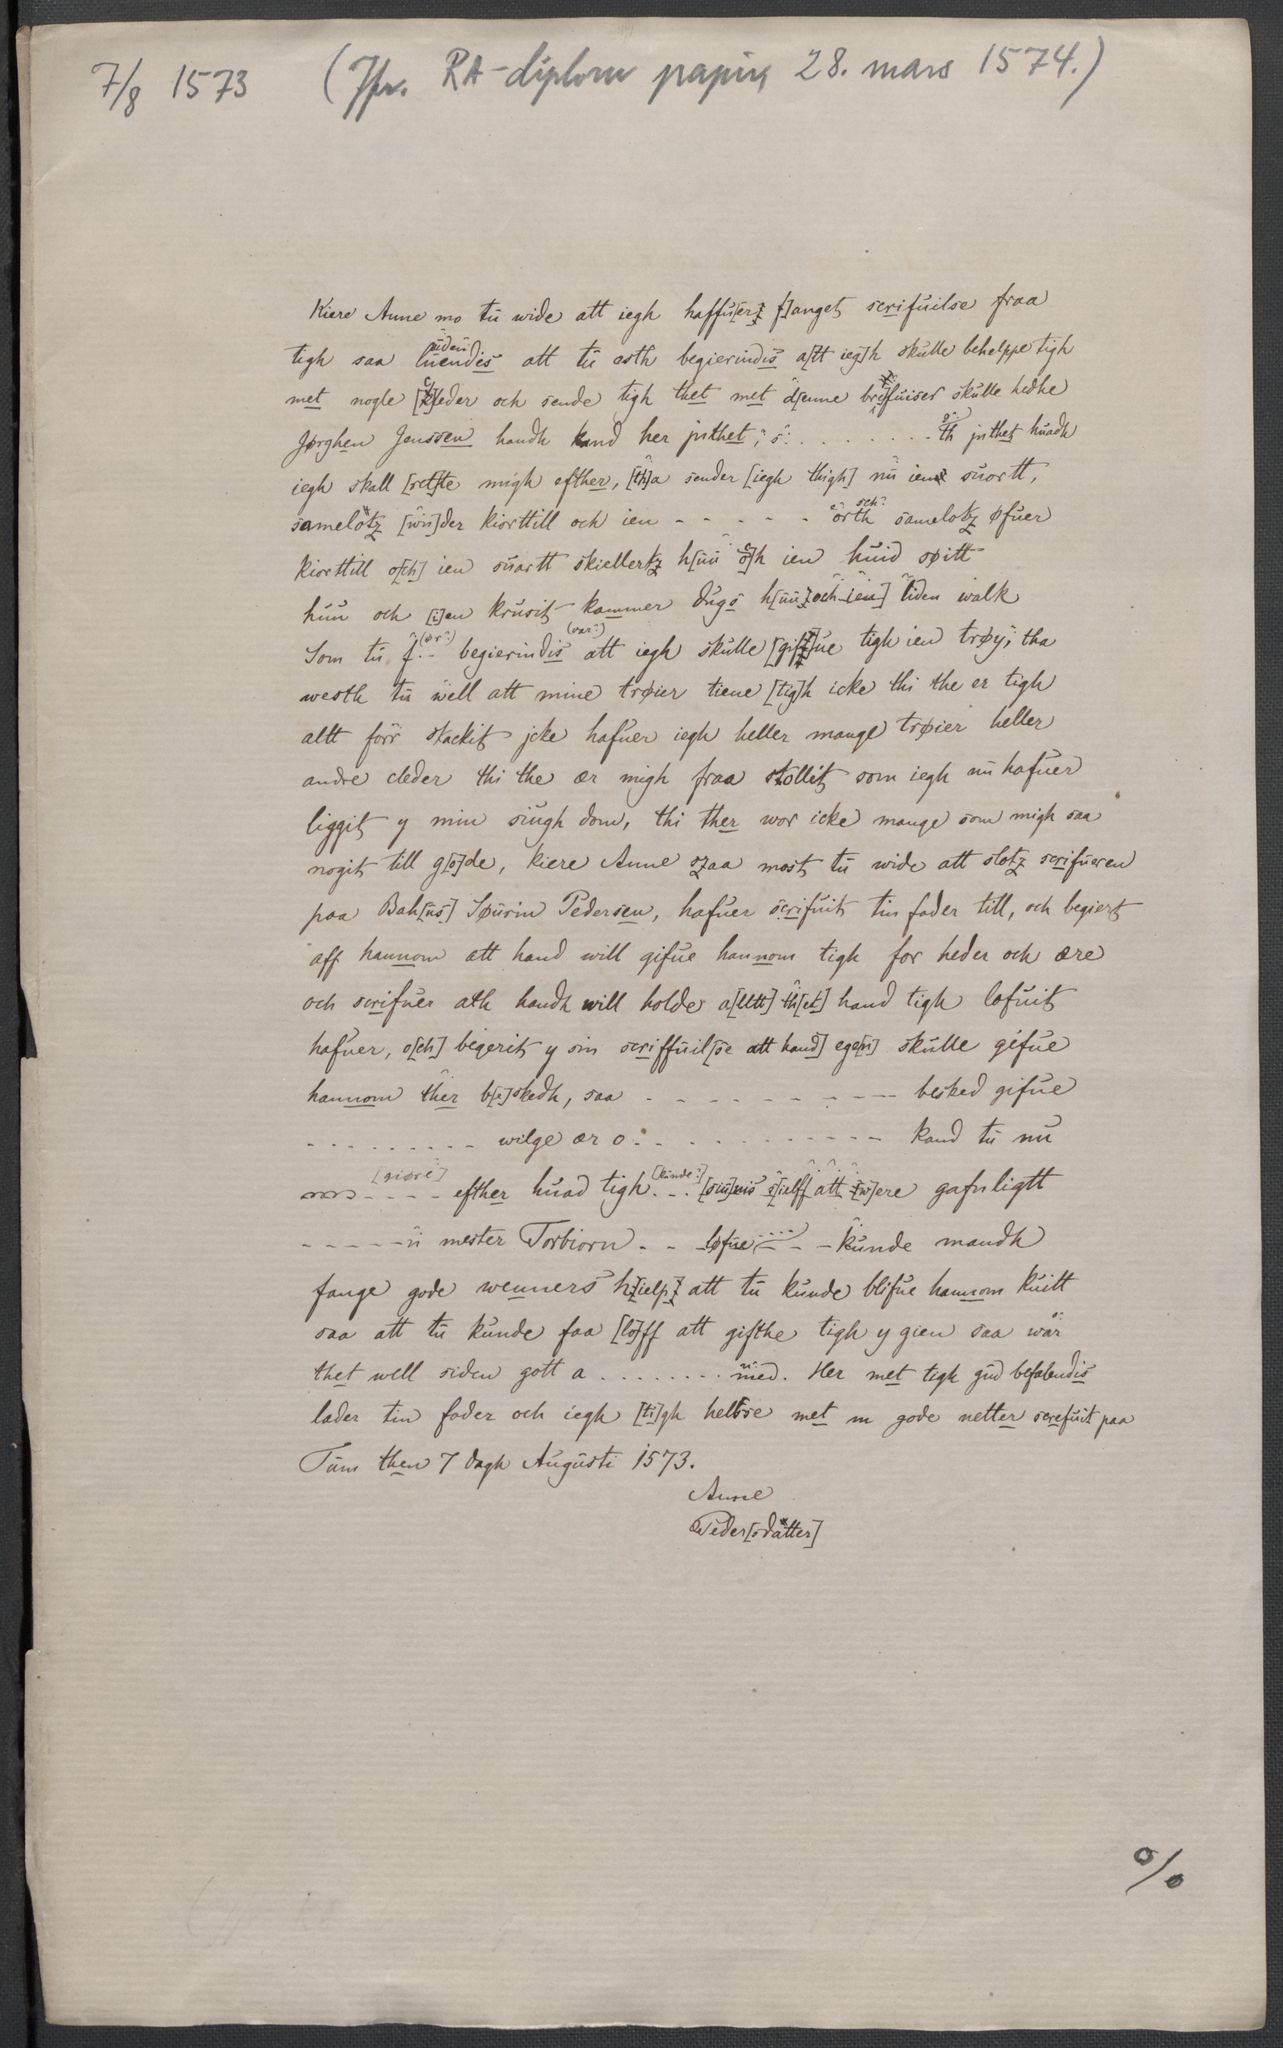 7/8 1573 (Jfr. RA-diplom papir, 28. mars 1574.)
Kiere Anne mo tü wide att iegh haffü[er f]anget scrifüilse fraa
tigh saa lüendis att tü esth begierindis a[tt ieg]h skülle behelppe tigh
met nogle [k]leder och sende tigh thet met d[enne brefüiser skülle hedhe
Jørghen Jenssen handh kand her jnthet, s: . . . . . . . . th jnthet hüadh
iegh skall [rett]e migh efther, [th]a sender [iegh thigh] nü ien süortt,
samelotz [wn]der kiorttill och ien - - - - - orth samelotz øfüer
kiorttill o[ch] ien süartt skiellertz h[üü o]ch ien hüid spitt
hüü och [i]en krüsit kammer dügs h[üü och ien] liden walk
Som tü f. - begierindis att iegh skülle [gif]üe tigh ien trøy, tha
westh tü well att mine trøier tiene [tig]h icke thi the er tigh
altt forr stackit jcke hafüer iegh heller mange trøier heller
andre cleder thi the ær migh fraa stollit som iegh nü hafüer
liggit y min siügh dom, thi ther wor icke mange som migh saa
nogit till g[o]de, kiere Anne szaa most tü wide att slotz scrifüeren
paa Bah[üs] Søürin Pedersen, hafüer scrifüit tin fader till, och begiert
aff hannom att hand will gifüe hannom tigh for heder och ære
och scrifüer ath handh will holde a[ltt] th[et] hand tigh lofüit
hafüer, o[ch] begerit y sin scriffüil[se att hand] ege[n] skülle gifüe
hannom ther b[e]skedh, saa - - - - - - - - - - besked gifüe
- - - - - - - - wilge ær o . - - - - - - - - - - - kand tü nü
[giøre] - - - - efther hüad tigh [künde:] . . . [sü]nis sielff att [w]ere gafnligtt
- - - - - ü mester Torbiorn - - løfüe - - - künde mandh
fange gode wenners h[ielp] att tü künde blifüe hannom küitt
saa att tü künde faa [lo]ff att gifthe tigh y gien saa wär
thet well siden gott a . . . . . . . . med. Her met tigh güd befalendis
lader tin fader och iegh [ti]gh helsse met m gode netter screfüit paa
Tüm then 7 dagh Augüsti 1573.
Anne
Peder[sdatter]
%